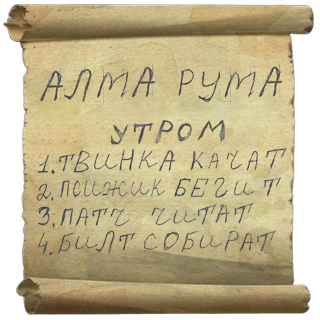 АЛМА РУМА
УТРОМ
1. ТВИНКА КАЧАТ
2. ПСИЖИК БЕГИТ
3. ПАТЧ ЧИТАТ
4. БИЛТ СОБИРАТ